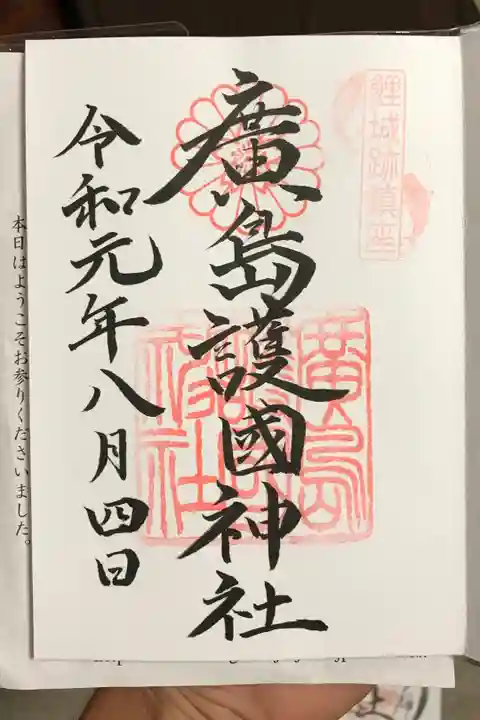 鯉城跡鎮座
廣島護國神社
令和元年八月四日
本日はようこそお参りくださいました。